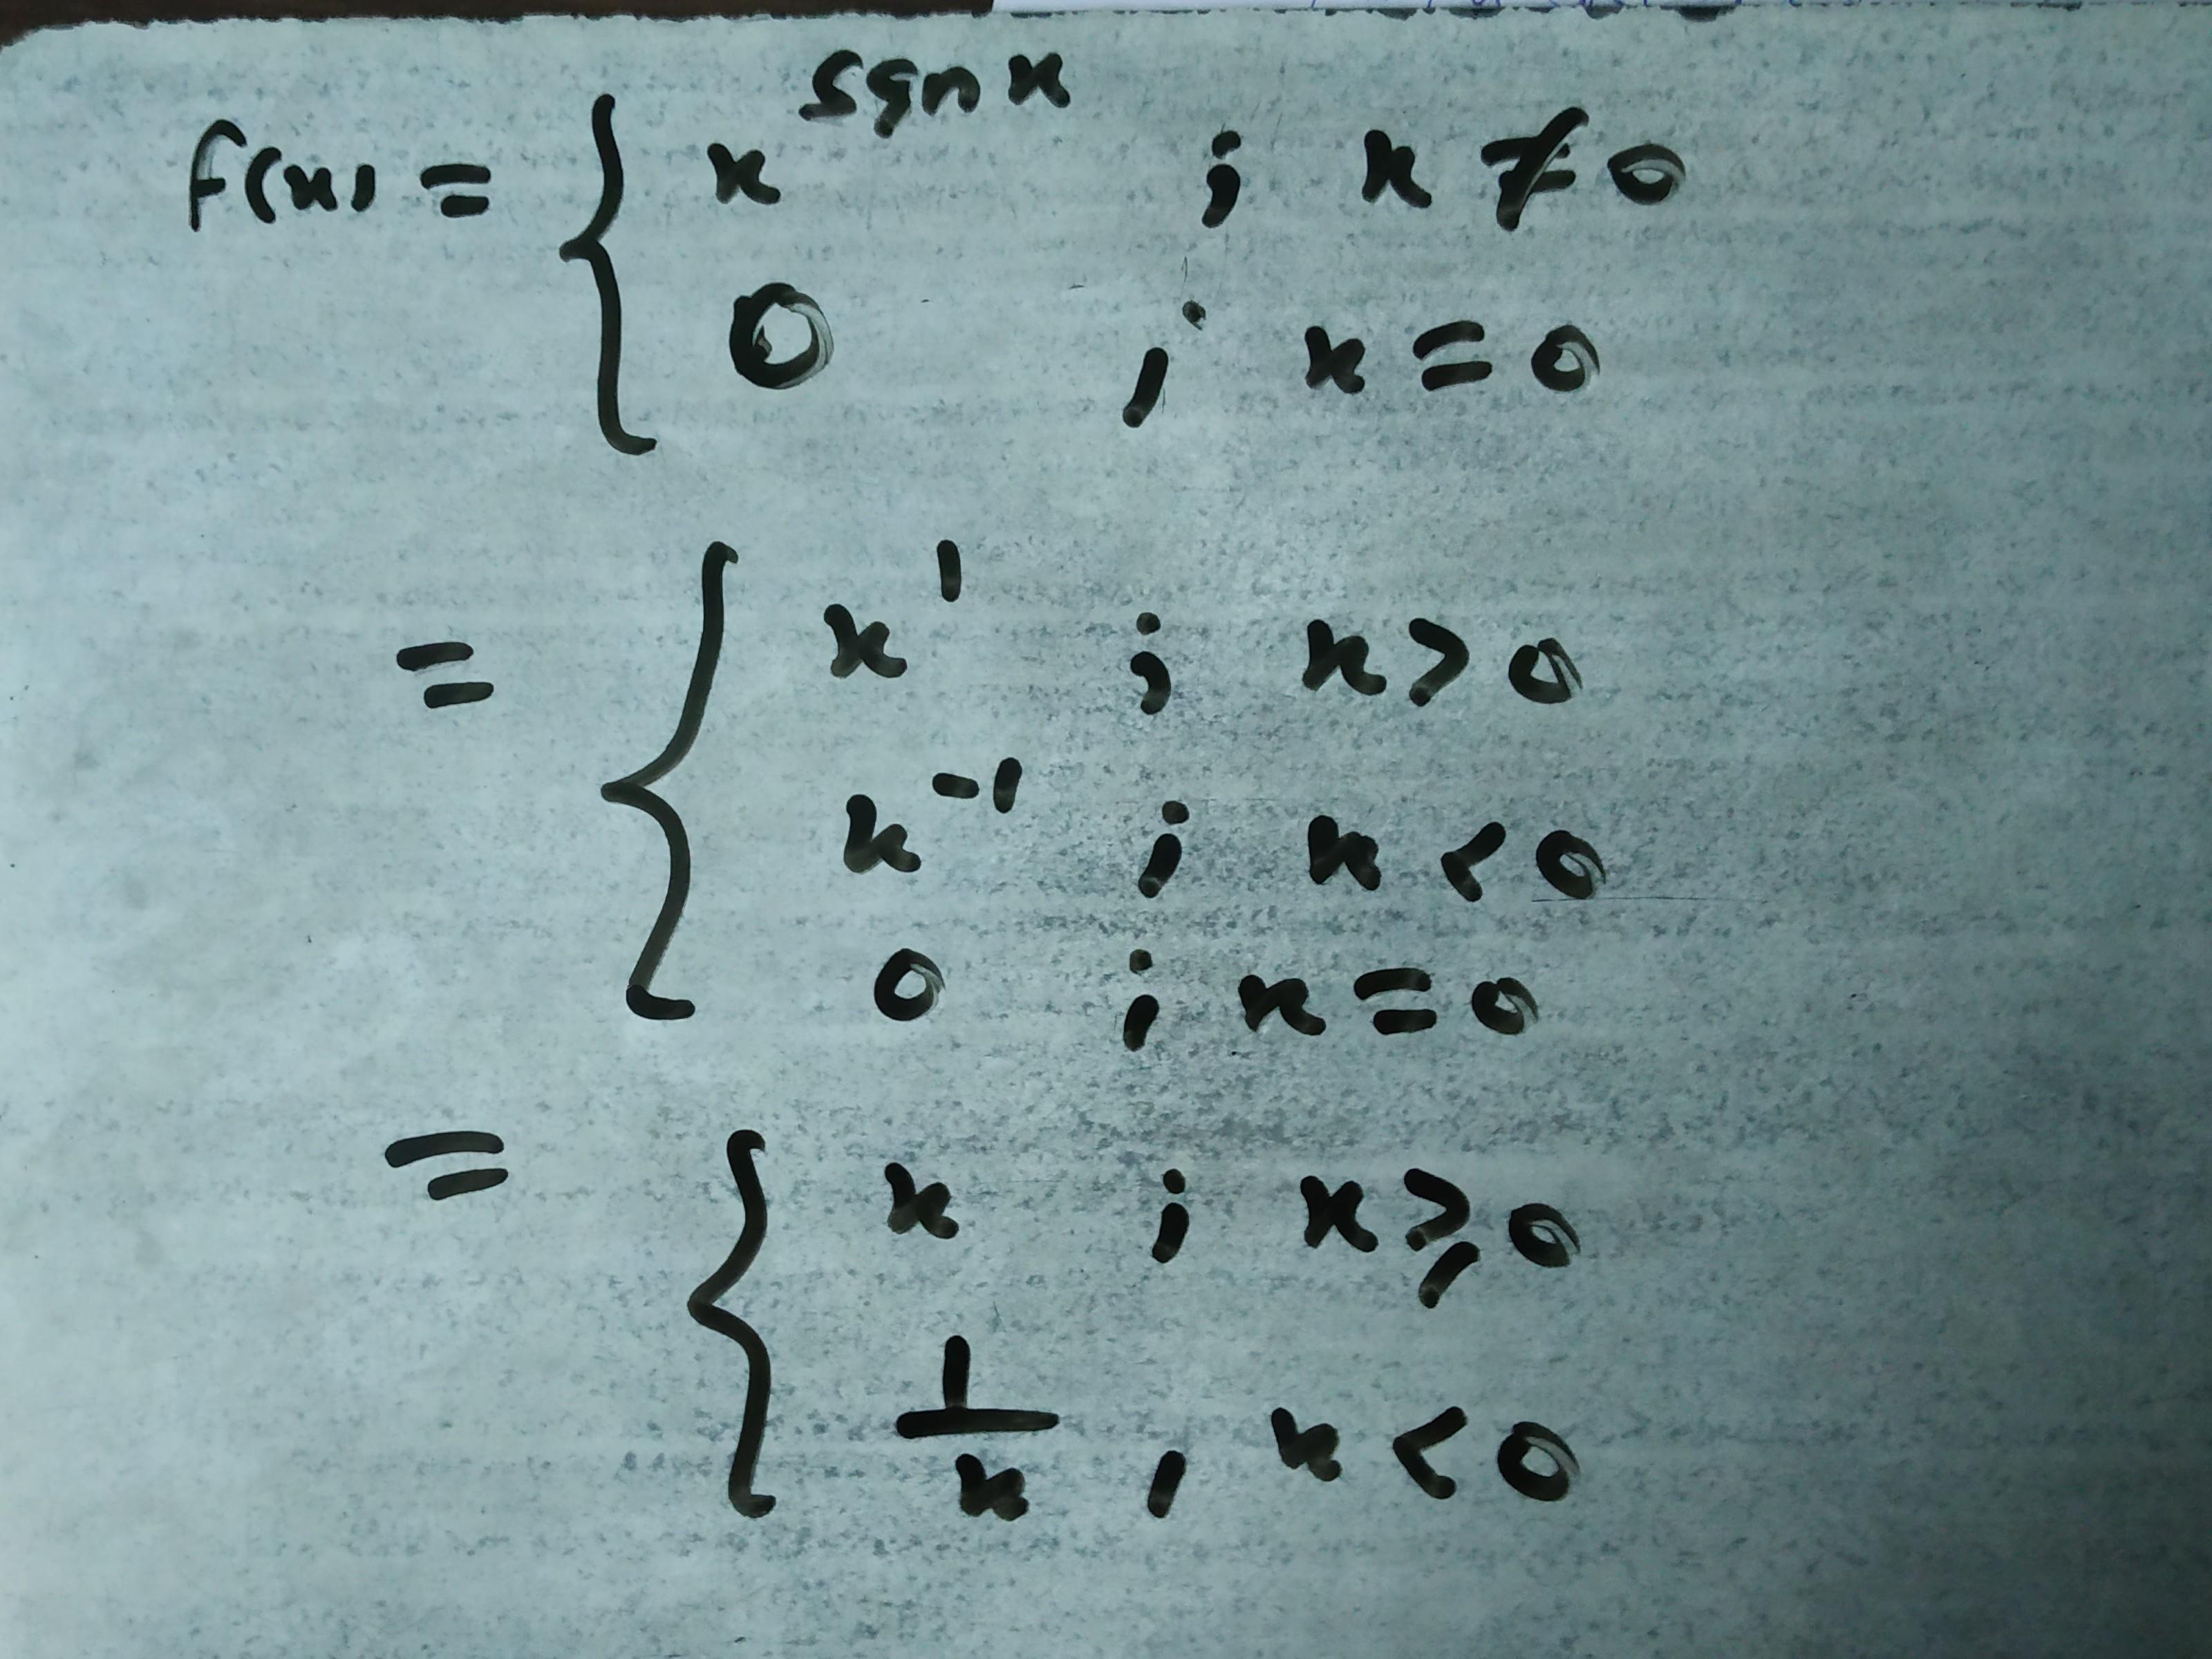 f(x) = { x^sgn x ; x ≠ 0
0 ; x = 0
= { x^1 ; x > 0
x^-1 ; x < 0
0 ; x = 0
= { x ; x ≥ 0
1/x , x < 0